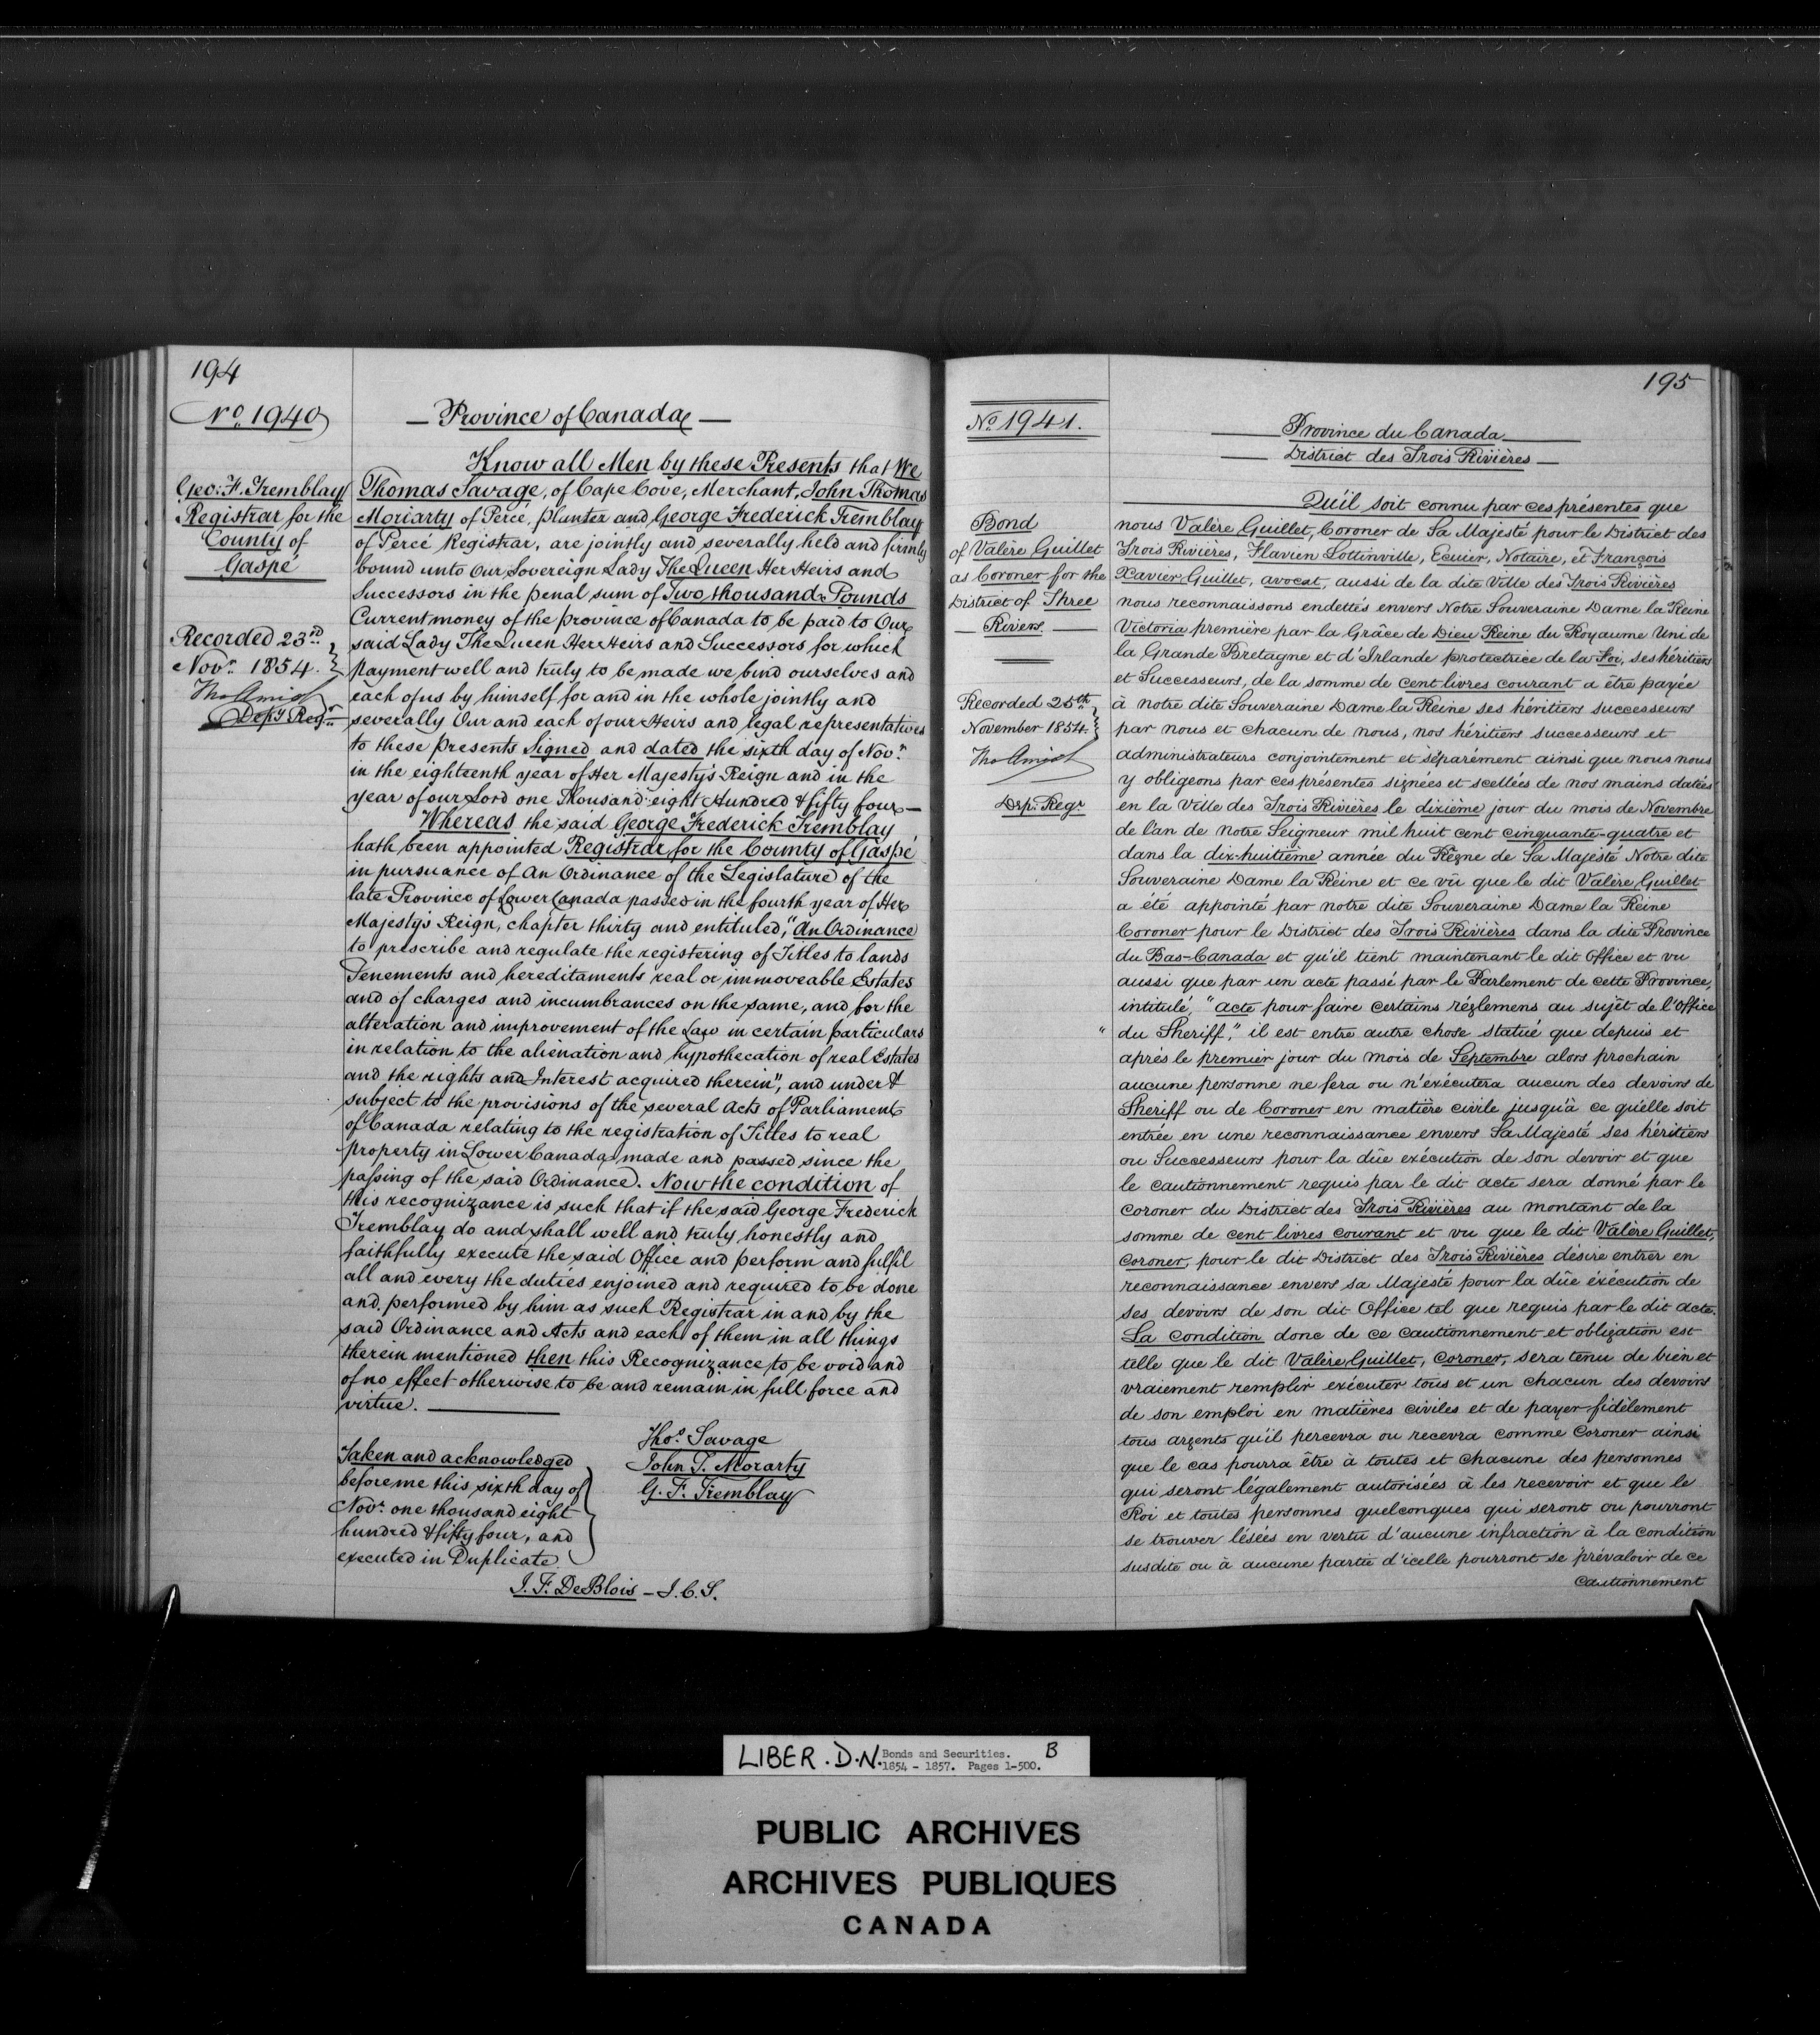 194
No. 1940
— Province of Canada —
Know all Men by these Presents that We
Geo: F. Tremblay
Registrar for the
County of
Gaspé
Recorded 23rd
Novr. 1854.
Thos Amiot
Depy Regr.
Thomas Savage, of Cape Cove, Merchant, John Thomas
Moriarty of Percé, planter and George Frederick Tremblay
of Percé Registrar, are jointly and severally held and firmly
bound unto Our Sovereign Lady The Queen Her Heirs and
Successors in the penal sum of Two thousand Pounds
Current money of the province of Canada to be paid to Our
said Lady The Queen Her Heirs and Successors for which
payment well and truly to be made we bind ourselves and
each of us by himself for and in the whole jointly and
severally Our and each of our Heirs and legal representatives
to these presents Signed and dated the sixth day of Novr.
in the eighteenth year of Her Majesty's Reign and in the
year of our Lord one Thousand eight Hundred & fifty four —
Whereas the said George Frederick Tremblay
hath been appointed Registrar for the County of Gaspé
in pursuance of An Ordinance of the Legislature of the
late Province of Lower Canada passed in the fourth year of Her
Majesty's Reign, chapter thirty and entituled, "An Ordinance
to prescribe and regulate the registering of Titles to lands
Tenements and hereditaments real or immoveable Estates
and of charges and incumbrances on the same, and for the
alteration and improvement of the Law in certain particulars
in relation to the alienation and hypothecation of real Estates
and the rights and Interest acquired therein", and under &
subject to the provisions of the several Acts of Parliament
of Canada relating to the registration of Titles to real
property in Lower Canada made and passed since the
passing of the said Ordinance. Now the condition of
this recognizance is such that if the said George Frederick
Tremblay do and shall well and truly honestly and
faithfully execute the said Office and perform and fulfil
all and every the duties enjoined and required to be done
and performed by him as such Registrar in and by the
said Ordinance and Acts and each of them in all things
therein mentioned then this Recognizance to be void and
of no effect otherwise to be and remain in full force and
virtue.
Taken and acknowledged
before me this sixth day of
Novr. one thousand eight
hundred & fifty four, and
executed in Duplicate
Thos. Savage
John T. Morarty
G. F. Tremblay
J. F. DeBlois — J.C.S.
195
No. 1941.
Province du Canada
District des Trois Rivières
Bond
of Valère Guillet
as Coroner for the
District of Three
Rivers.
Recorded 25th
November 1854.
Thos Amiot
Dep: Regr
Qu'il soit connu par ces présentes que
nous Valère Guillet, Coroner de Sa Majesté pour le District des
Trois Rivières, Flavien Lottinville, Ecuier, Notaire, et François
Xavier Guillet, avocat, aussi de la dite Ville des Trois Rivières
nous reconnaissons endettés envers Notre Souveraine Dame la Reine
Victoria première par la Grâce de Dieu Reine du Royaume Uni de
la Grande Bretagne et d'Irlande protectrice de la Foi, ses héritiers
et Successeurs, de la somme de cent livres courant a être payée
à notre dite Souveraine Dame la Reine ses héritiers successeurs
par nous et chacun de nous, nos héritiers successeurs et
administrateurs conjointement et séparément ainsi que nous nous
y obligeons par ces présentes signées et scellées de nos mains datées
en la Ville des Trois Rivières le dixième jour du mois de Novembre
de l'an de notre Seigneur mil huit cent cinquante-quatre et
dans la dix-huitième année du Règne de Sa Majesté Notre dite
Souveraine Dame la Reine et ce vû que le dit Valère Guillet
a été appointé par notre dite Souveraine Dame la Reine
Coroner pour le District des Trois Rivières dans la dite Province
du Bas-Canada et qu'il tient maintenant le dit Office et vu
aussi que par un acte passé par le Parlement de cette Province,
intitulé, "acte pour faire certains réglemens au sujèt de l'Office
" du Sheriff," il est entre autre chose statué que depuis et
après le premier jour du mois de Septembre alors prochain
aucune personne ne fera ou n'exécutera aucun des devoirs de
Sheriff ou de Coroner en matière civile jusqu'à ce qu'elle soit
entrée en une reconnaissance envers Sa Majesté ses héritiers
ou Successeurs pour la dûe exécution de son devoir et que
le cautionnement requis par le dit acte sera donné par le
Coroner du District des Trois Rivières au montant de la
somme de cent livres courant et vu que le dit Valère Guillet,
Coroner, pour le dit District des Trois Rivières désire entrer en
reconnaissance envers sa Majesté pour la dûe éxécution de
ses devoirs de son dit Office tel que requis par le dit acte.
La condition donc de ce cautionnement et obligation est
telle que le dit Valère Guillet, Coroner, sera tenu de bien et
vraiement remplir exécuter tous et un chacun des devoirs
de son emploi en matières civiles et de payer fidèlement
tous argents qu'il percevra ou recevra comme Coroner ainsi
que le cas pourra être à toutes et chacune des personnes
qui seront légalement autorisées à les recevoir et que le
Roi et toutes personnes quelconques qui seront ou pourront
se trouver lésées en vertu d'aucune infraction à la condition
susdite ou à aucune partie d'icelle pourront se prévaloir de ce
cautionnement
LIBER . D.N. Bonds and Securities. B
1854 - 1857. Pages 1-500.
PUBLIC ARCHIVES
ARCHIVES PUBLIQUES
CANADA